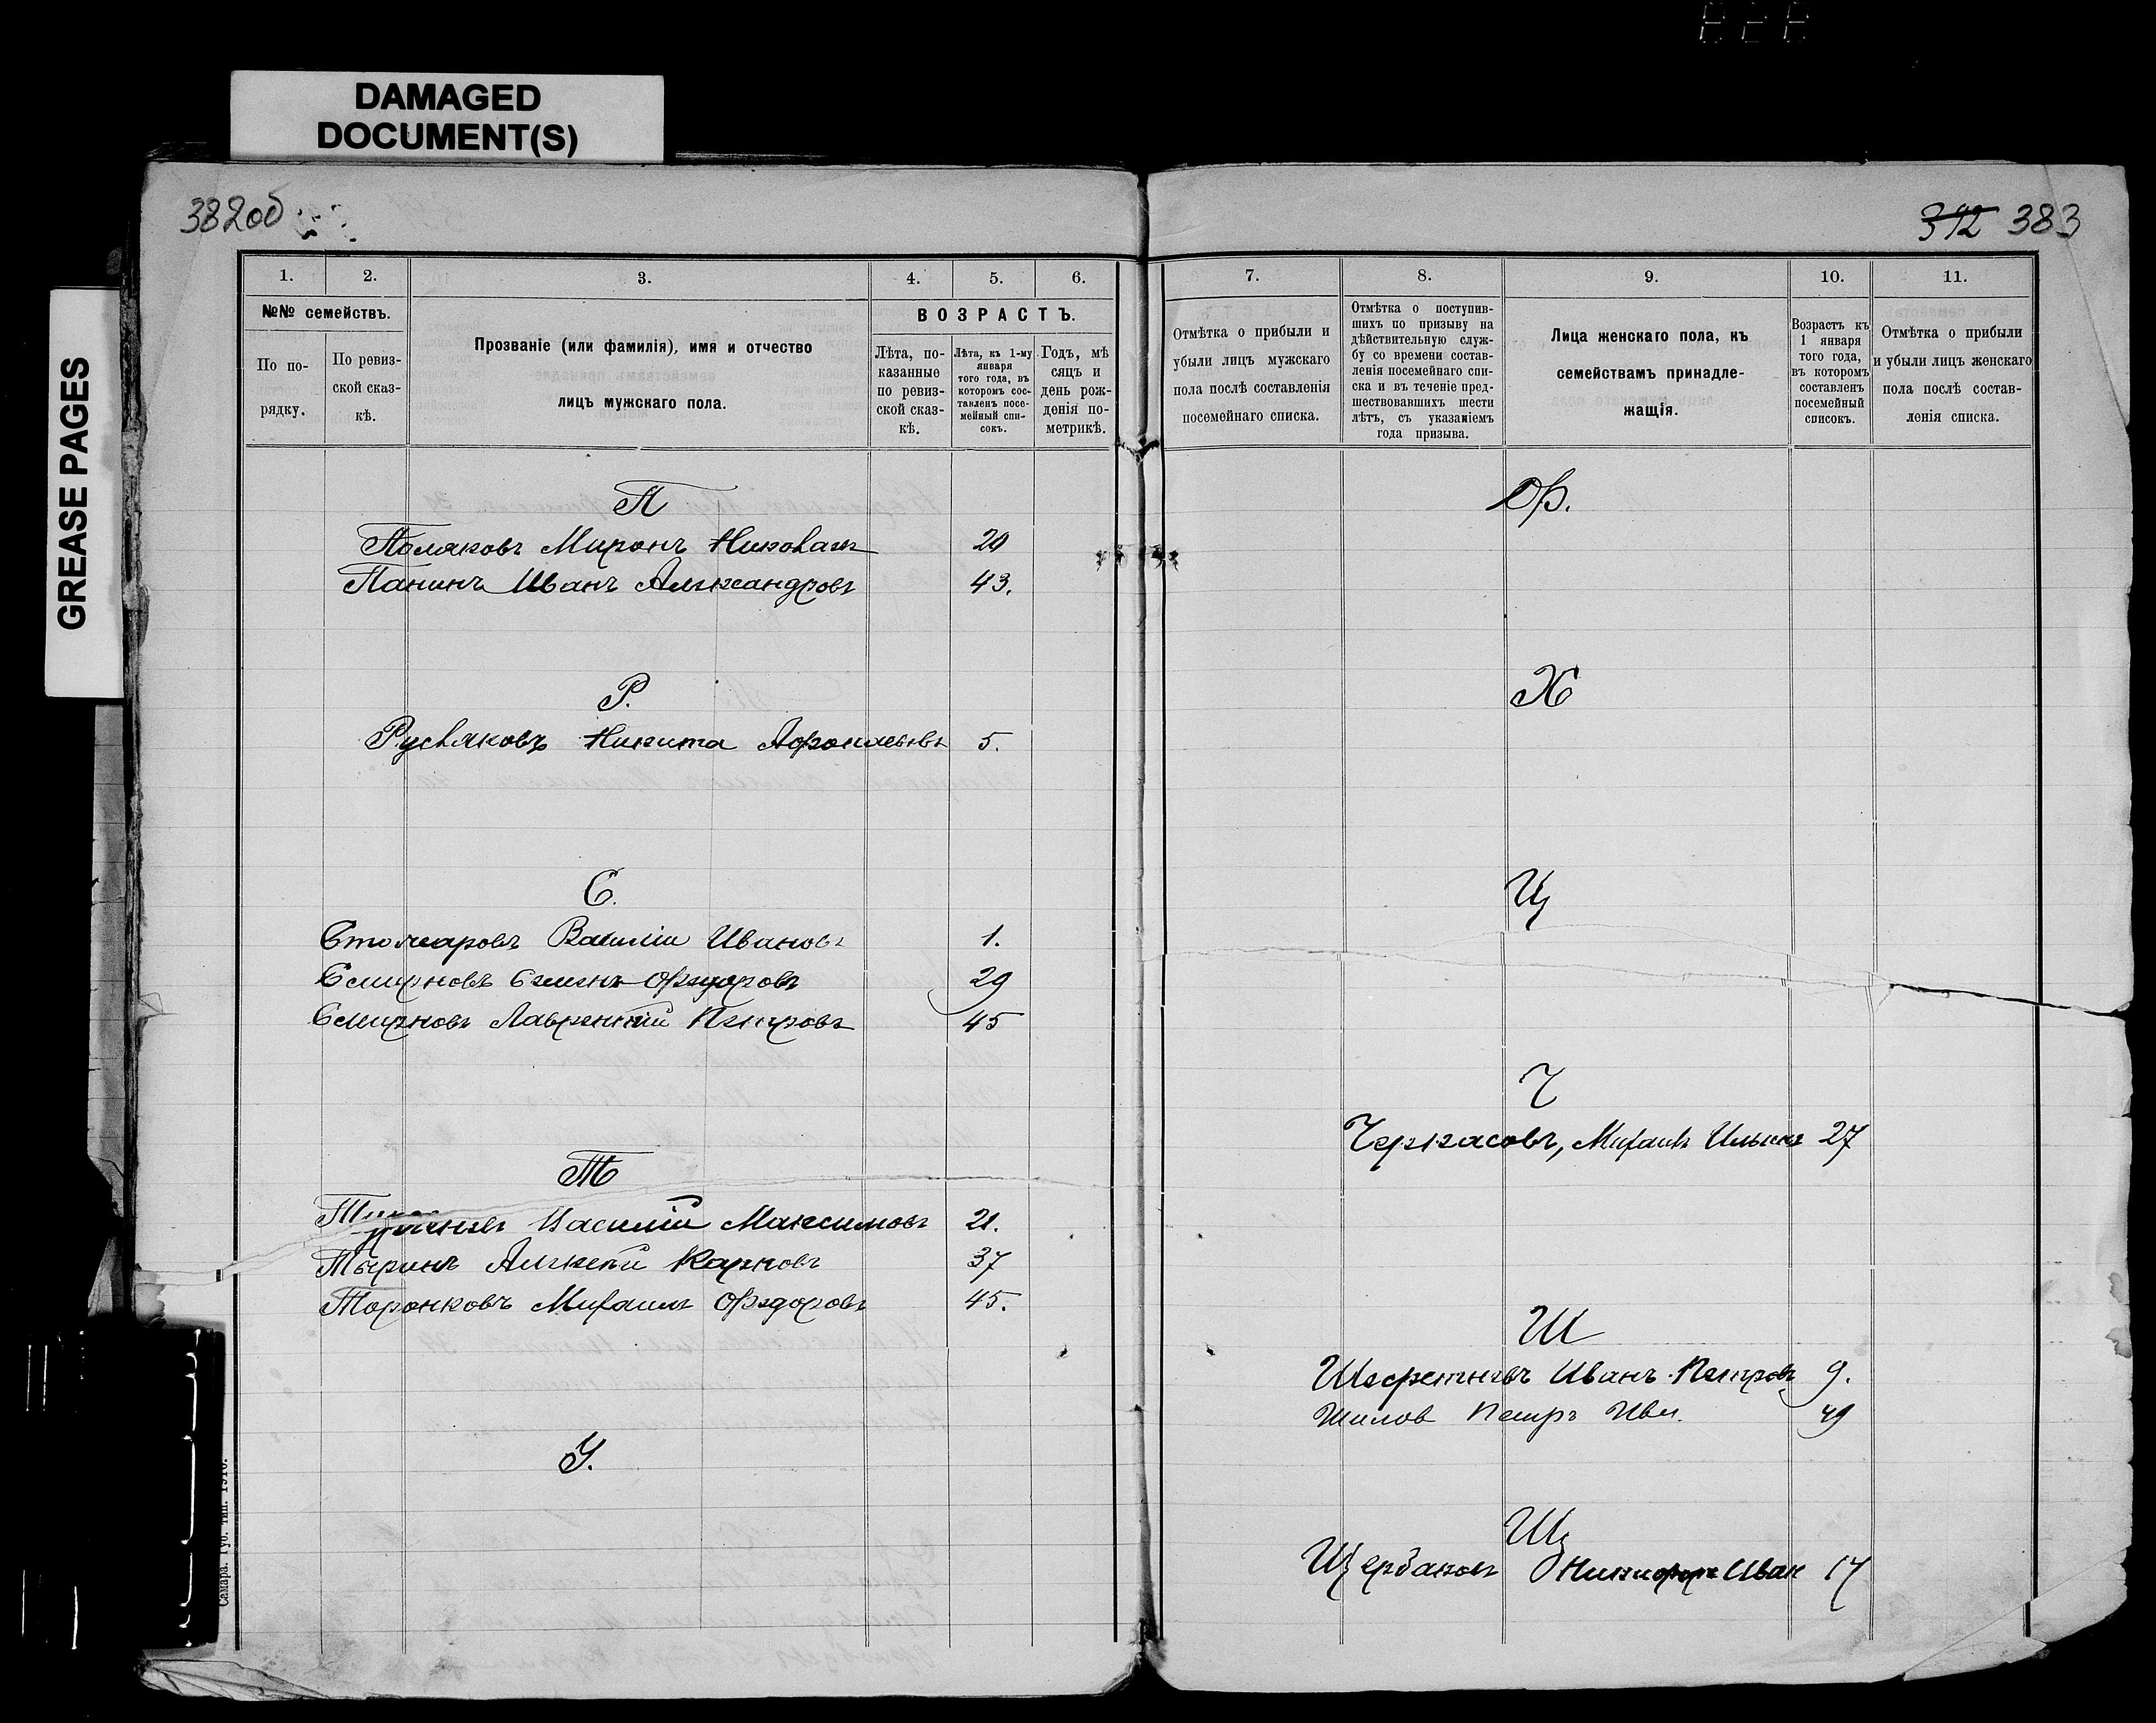 DAMAGED
DOCUMENT(S)
GREASE PAGES
382об
392 383
1. 2. 3. 4. 5. 6.
№№ семействъ.
По по-
рядку.
По ревиз-
ской сказ-
кѣ.
Прозваніе (или фамилія), имя и отчество
лицъ мужскаго пола.
ВОЗРАСТЪ.
Лѣта, по-
казанные
по ревиз-
ской сказ-
кѣ.
Лѣта, къ 1-му
января
того года, въ
которомъ сос-
тавленъ посе-
мейный спи-
сокъ.
Годъ, мѣ
сяцъ и
день рож-
денія по-
метрикѣ.
П
Поляковъ Миронъ Николаев 20
Панинъ Иванъ Александровъ 43.
Р.
Русляковъ Никита 5.
С.
Столяровъ Василій Ивановъ 1.
Смирновъ Семенъ Ѳедоровъ 29
Смирновъ Лаврентій Петровъ 45
Т
Василій Максимовъ 21.
Тыринъ Алексѣй Карповъ 37
Торонковъ Михаилъ Ѳедоровъ 45.
У.
Самара. Губ. тип. 1916.
7. 8. 9. 10. 11.
Отмѣтка о прибыли и
убыли лицъ мужскаго
пола послѣ составленія
посемейнаго списка.
Отмѣтка о поступив-
шихъ по призыву на
дѣйствительную служ-
бу со времени состав-
ленія посемейнаго спи-
ска и въ теченіе пред-
шествовавшихъ шести
лѣтъ, съ указаніемъ
года призыва.
Лица женскаго пола, къ
семействамъ принадле-
жащія.
Возрастъ къ
1 января
того года,
въ которомъ
составленъ
посемейный
списокъ.
Отмѣтка о прибыли
и убыли лицъ женскаго
пола послѣ состав-
ленія списка.
Ф.
Х
Ц
Ч
Черкасовъ, Михаилъ Ильинъ 27
Ш
Иванъ Петровъ 9.
Шилов Петръ Ивн. 49
Щ
Щербаковъ Никифоръ Иван 17